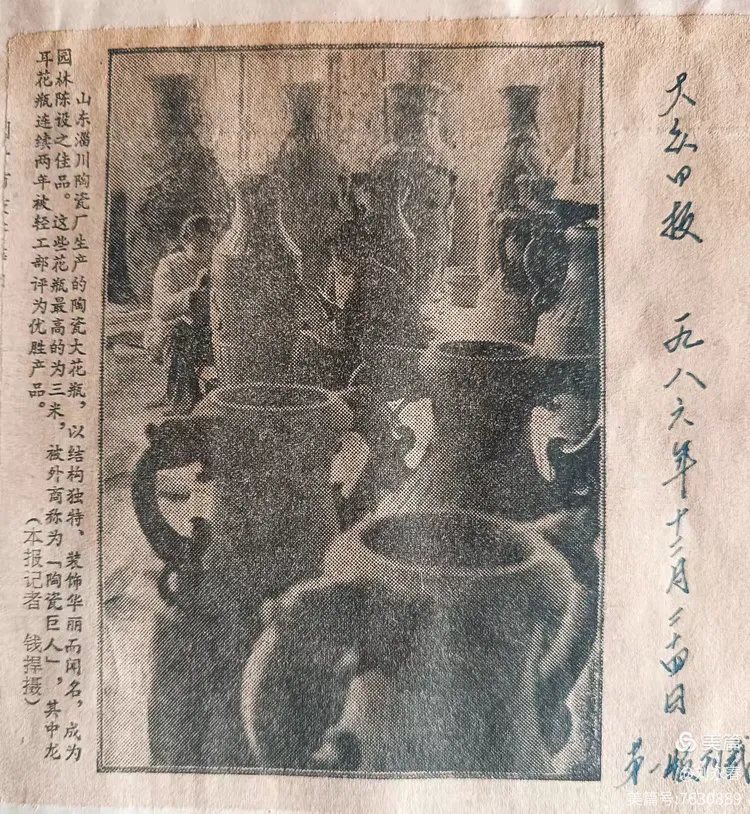 山东淄川陶瓷厂生产的陶瓷大花瓶，以结构独特、装饰华丽而闻名，成为
园林陈设之佳品。这些花瓶最高的为三米，被外商称为“陶瓷巨人”，其中龙
耳花瓶连续两年被轻工部评为优胜产品。
（本报记者 钱捍摄）
大众日报
一九八六年十二月二十四日
第一版刊载
美篇
美篇号:7630889